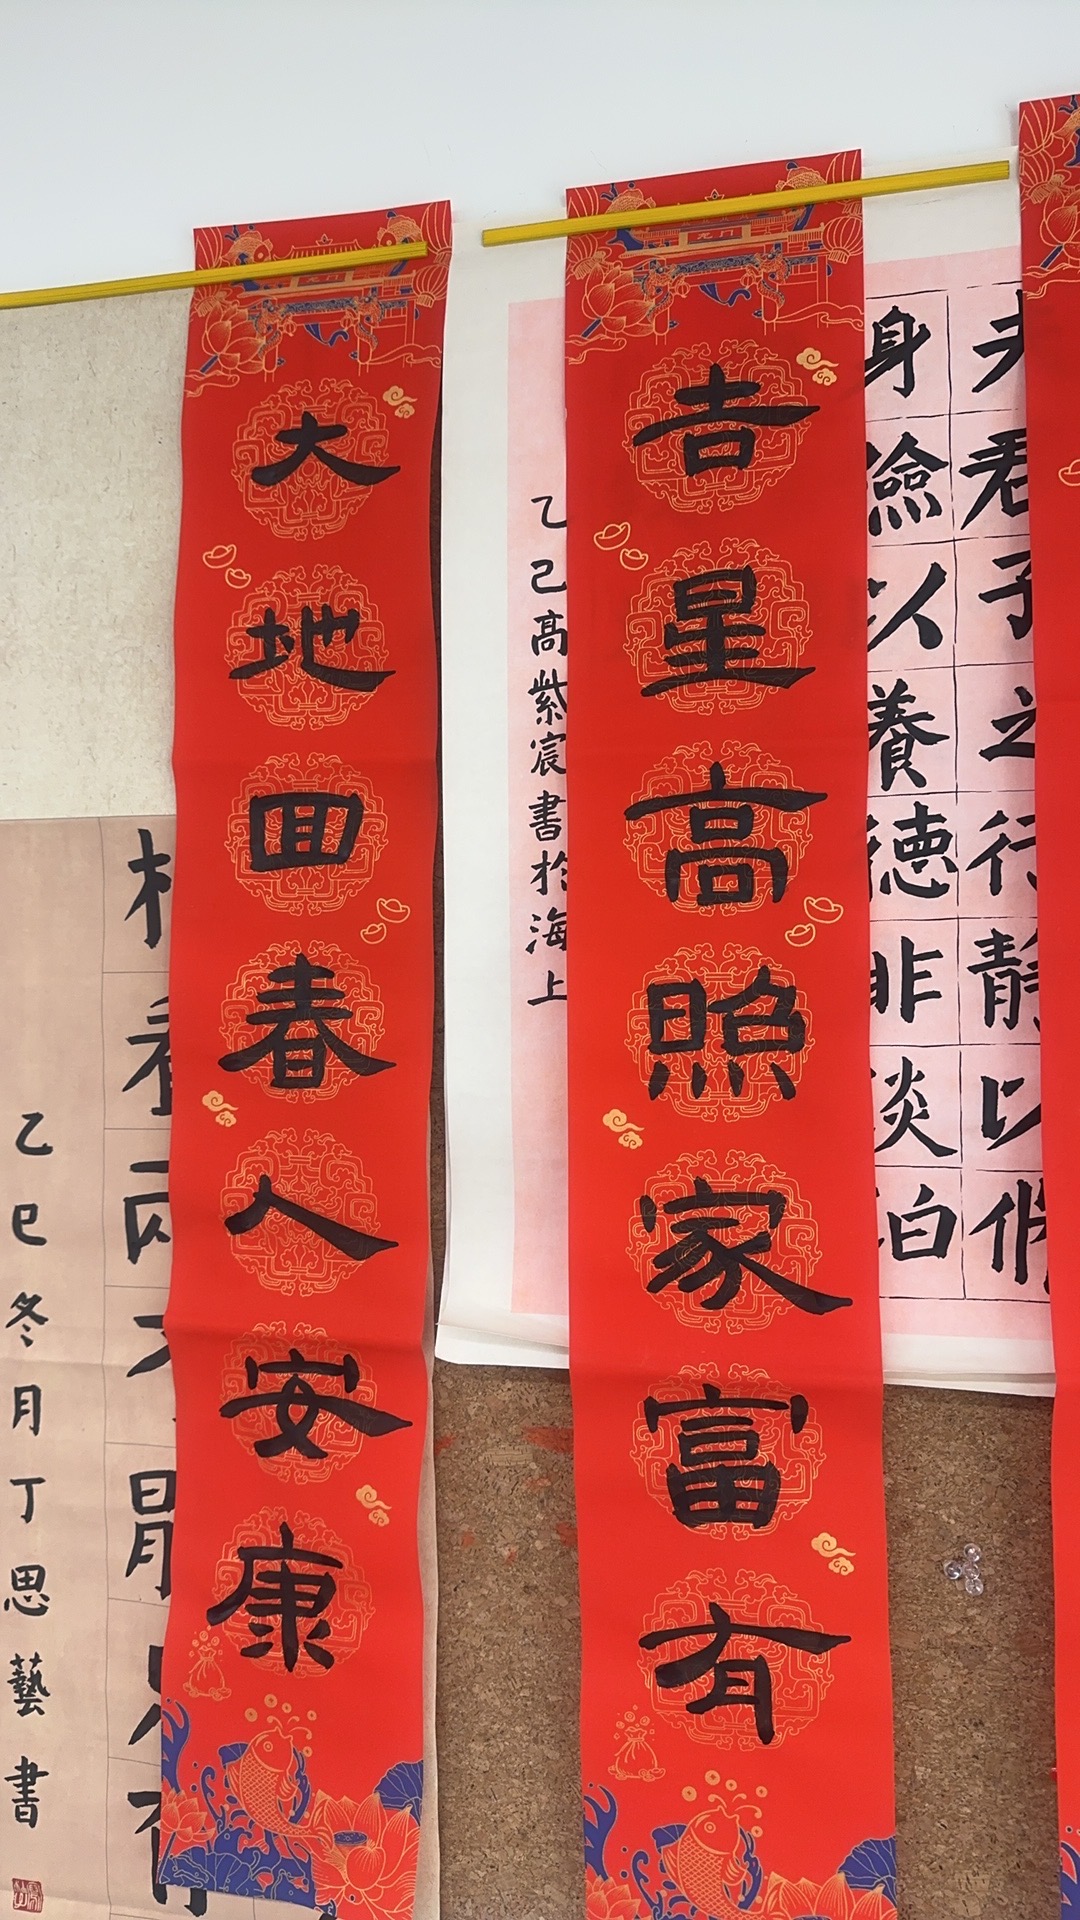 夫君子之行静以修
身儉以養德非淡泊
吉星高照家富有
乙己高紫宸書於海上
大地回春人安康
乙巳冬月丁思藝書